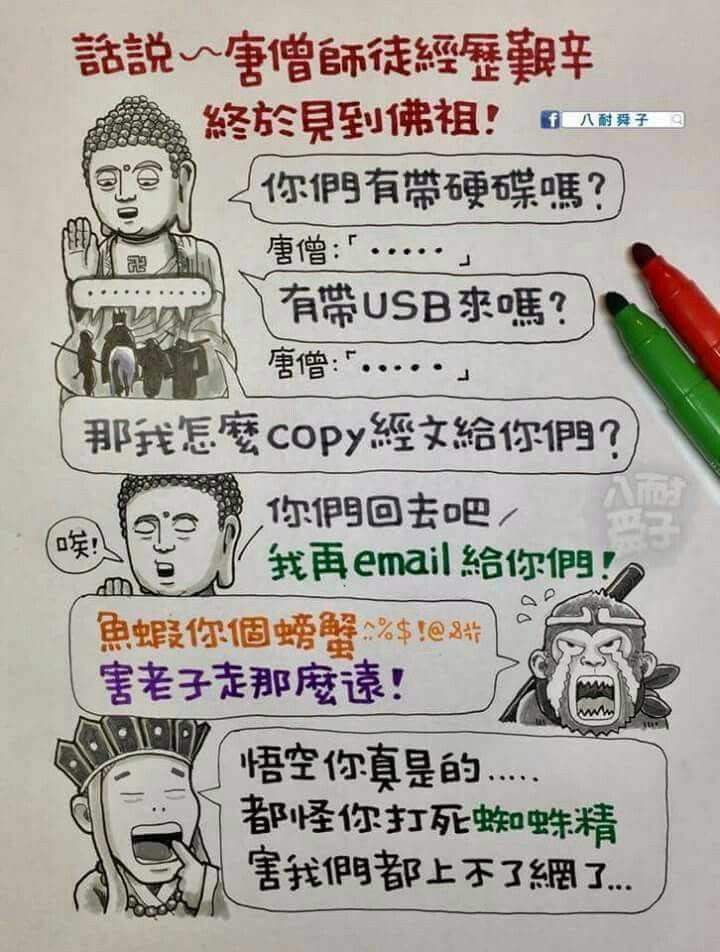 話說~唐僧師徒經歷艱辛
終於見到佛祖!
八耐舜子
你們有帶硬碟嗎?
唐僧:「‧‧‧‧‧」
有帶USB來嗎?
唐僧:「‧‧‧‧‧」
那我怎麼copy經文給你們?
唉!
你們回去吧
我再email給你們!
八耐
舜子
魚蝦你個螃蟹∴%$!@&#
害老子走那麼遠!
悟空你真是的.....
都怪你打死蜘蛛精
害我們都上不了網了...